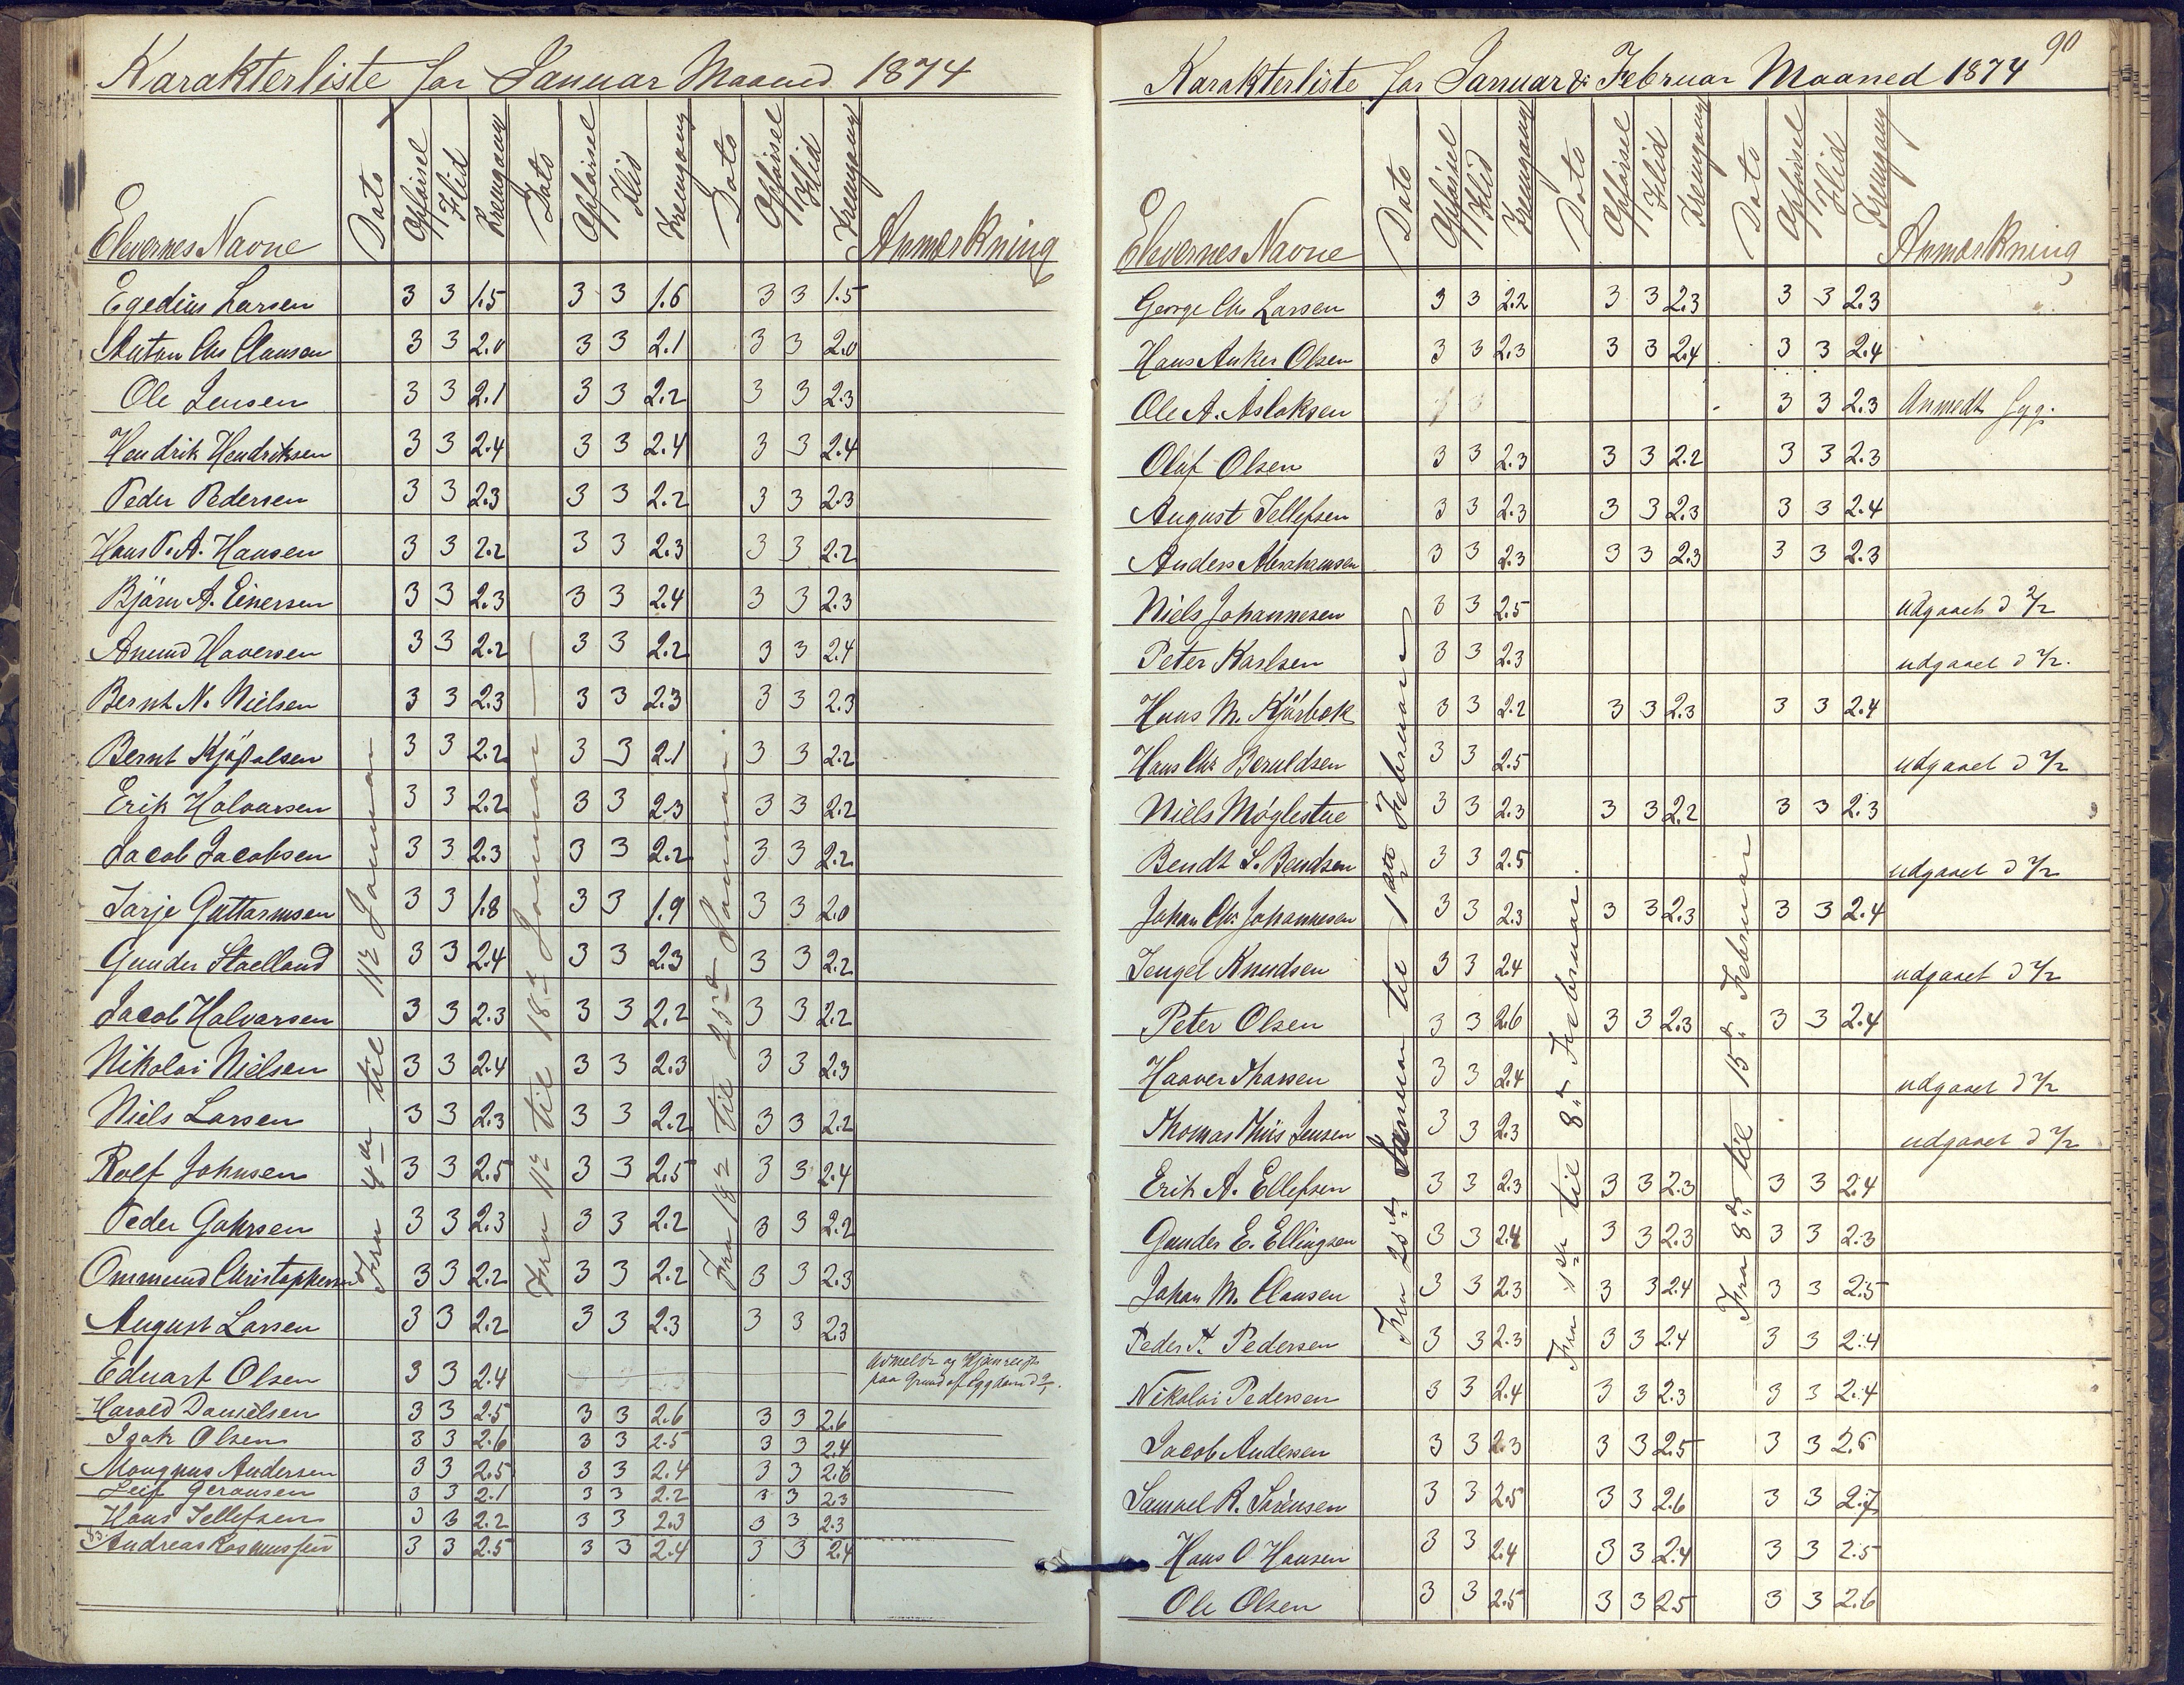 Karakterliste for Januar Maaned 1874
Elevernes Navne Dato Opførsel Flid Fremgang Dato Opførsel Flid Fremgang Dato Opførsel Flid Fremgang Anmærkning
Fra 4de til 11te Januar
Fra 11te til 18de Januar
Fra 18de til 25de Januar
Egedius Larsen 3 3 1.5 3 3 1.6 3 3 1.5
Anton Chr Clausen 3 3 2.0 3 3 2.1 3 3 2.0
Ole Jensen 3 3 2.1 3 3 2.2 3 3 2.3
Hendrik Hendriksen 3 3 2.4 3 3 2.4 3 3 2.4
Peder Pedersen 3 3 2.3 3 3 2.2 3 3 2.3
Hans P. A. Hansen 3 3 2.2 3 3 2.3 3 3 2.2
Björn A. Einersen 3 3 2.3 3 3 2.4 3 3 2.3
Anund Haversen 3 3 2.2 3 3 2.2 3 3 2.4
Bernt N. Nielsen 3 3 2.3 3 3 2.3 3 3 2.3
Bernt 3 3 2.2 3 3 2.1 3 3 2.2
Erik Halvorsen 3 3 2.2 3 3 2.3 3 3 2.2
Jacob Jacobsen 3 3 2.3 3 3 2.2 3 3 2.2
Tarje Guttormsen 3 3 1.8 3 3 1.9 3 3 2.0
Gunder Staelland 3 3 2.4 3 3 2.3 3 3 2.2
Jacob Halvorsen 3 3 2.3 3 3 2.2 3 3 2.2
Nikolai Nielsen 3 3 2.4 3 3 2.3 3 3 2.3
Niels Larsen 3 3 2.3 3 3 2.2 3 3 2.2
Rolf Johnsen 3 3 2.5 3 3 2.5 3 3 2.4
Peder Gahrsen 3 3 2.3 3 3 2.2 3 3 2.2
Ommund Christophersen 3 3 2.2 3 3 2.2 3 3 2.3
August Larsen 3 3 2.2 3 3 2.3 3 3 2.3
Eduart Olsen 3 3 2.4 paa Grund af Sygdom
Harold Danielsen 3 3 2.5 3 3 2.6 3 3 2.6
Isak Olsen 3 3 2.6 3 3 2.5 3 3 2.4
Mougnus Andersen 3 3 2.5 3 3 2.4 3 3 2.6
Leif Geransen 3 3 2.1 3 3 2.2 3 3 2.3
Hans Tellefsen 3 3 2.2 3 3 2.3 3 3 2.3
Andreas Rasmussen 3 3 2.5 3 3 2.4 3 3 2.4
90
Karakterliste for Januar & Februar Maaned 1874
Elevernes Navne Dato Opførsel Flid Fremgang Dato Opførsel Flid Fremgang Dato Opførsel Flid Fremgang Anmærkning
Fra 25de Januar til 1ste Februar
Fra 1ste til 8de Februar.
Fra 8de til 15de Februar
George Chr Larsen 3 3 2.2 3 3 2.3 3 3 2.3
Hans Anker Olsen 3 3 2.3 3 3 2.4 3 3 2.4
Ole A. Aslaksen 3 3 2.3 Anmeldt syg.
Oluf Olsen 3 3 2.3 3 3 2.2 3 3 2.3
August Tellefsen 3 3 2.3 3 3 2.3 3 3 2.4
Anders Abrahamsen 3 3 2.3 3 3 2.3 3 3 2.3
Niels Johannesen 3 3 2.5 udgaaet d 2/2
Peter Karlsen 3 3 2.3 udgaaet d 2/2.
Hans M. Kjörbek 3 3 2.2 3 3 2.3 3 3 2.4
Hans Chr Beruldsen 3 3 2.5 udgaaet d 2/2
Niels Møglestue 3 3 2.3 3 3 2.2 3 3 2.3
Bendt S. Bendtsen 3 3 2.5 udgaaet d 2/2
Johan Chr Johannesen 3 3 2.3 3 3 2.3 3 3 2.4
Tengel Knudsen 3 3 2.4 udgaaet d 2/2
Peter Olsen 3 3 2.6 3 3 2.3 3 3 2.4
Haaver Tharsen 3 3 2.4 udgaaet d 2/2
Thomas Thiis Jensen 3 3 2.3 udgaaet d 2/2
Erik A. Ellefsen 3 3 2.3 3 3 2.3 3 3 2.4
Gunder E. Ellingsen 3 3 2.4 3 3 2.3 3 3 2.3
Johan M. Clausen 3 3 2.3 3 3 2.4 3 3 2.5
Peder P. Pedersen 3 3 2.3 3 3 2.4 3 3 2.4
Nikolai Pedersen 3 3 2.4 3 3 2.3 3 3 2.4
Jacob Andersen 3 3 2.3 3 3 2.5 3 3 2.5
Samuel R. Sörensen 3 3 2.5 3 3 2.6 3 3 2.7
Hans O Hansen 3 3 2.4 3 3 2.4 3 3 2.5
Ole Olsen 3 3 2.5 3 3 2.5 3 3 2.6